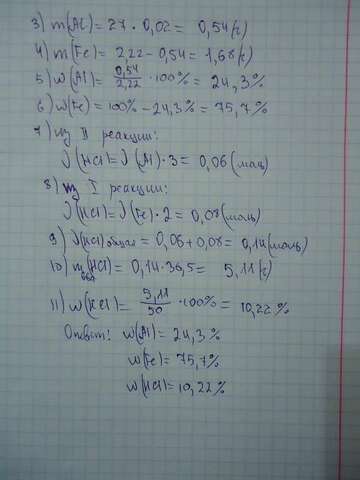 3) m(Al) = 27 · 0,02 = 0,54(г)
4) m(Fe) = 2,22 - 0,54 = 1,68(г)
5) w(Al) = 0,54/2,22 · 100% = 24,3%
6) w(Fe) = 100% - 24,3% = 75,7%
7) из II реакции:
ν(HCl) = ν(Al) · 3 = 0,06(моль)
8) из I реакции:
ν(HCl) = ν(Fe) · 2 = 0,08(моль)
9) ν(HCl) общая = 0,06 + 0,08 = 0,14(моль)
10) m(HCl) = 0,14 · 36,5 = 5,11(г)
11) w(HCl) = 5,11/50 · 100% = 10,22%
Ответ: w(Al) = 24,3%
w(Fe) = 75,7%
w(HCl) = 10,22%